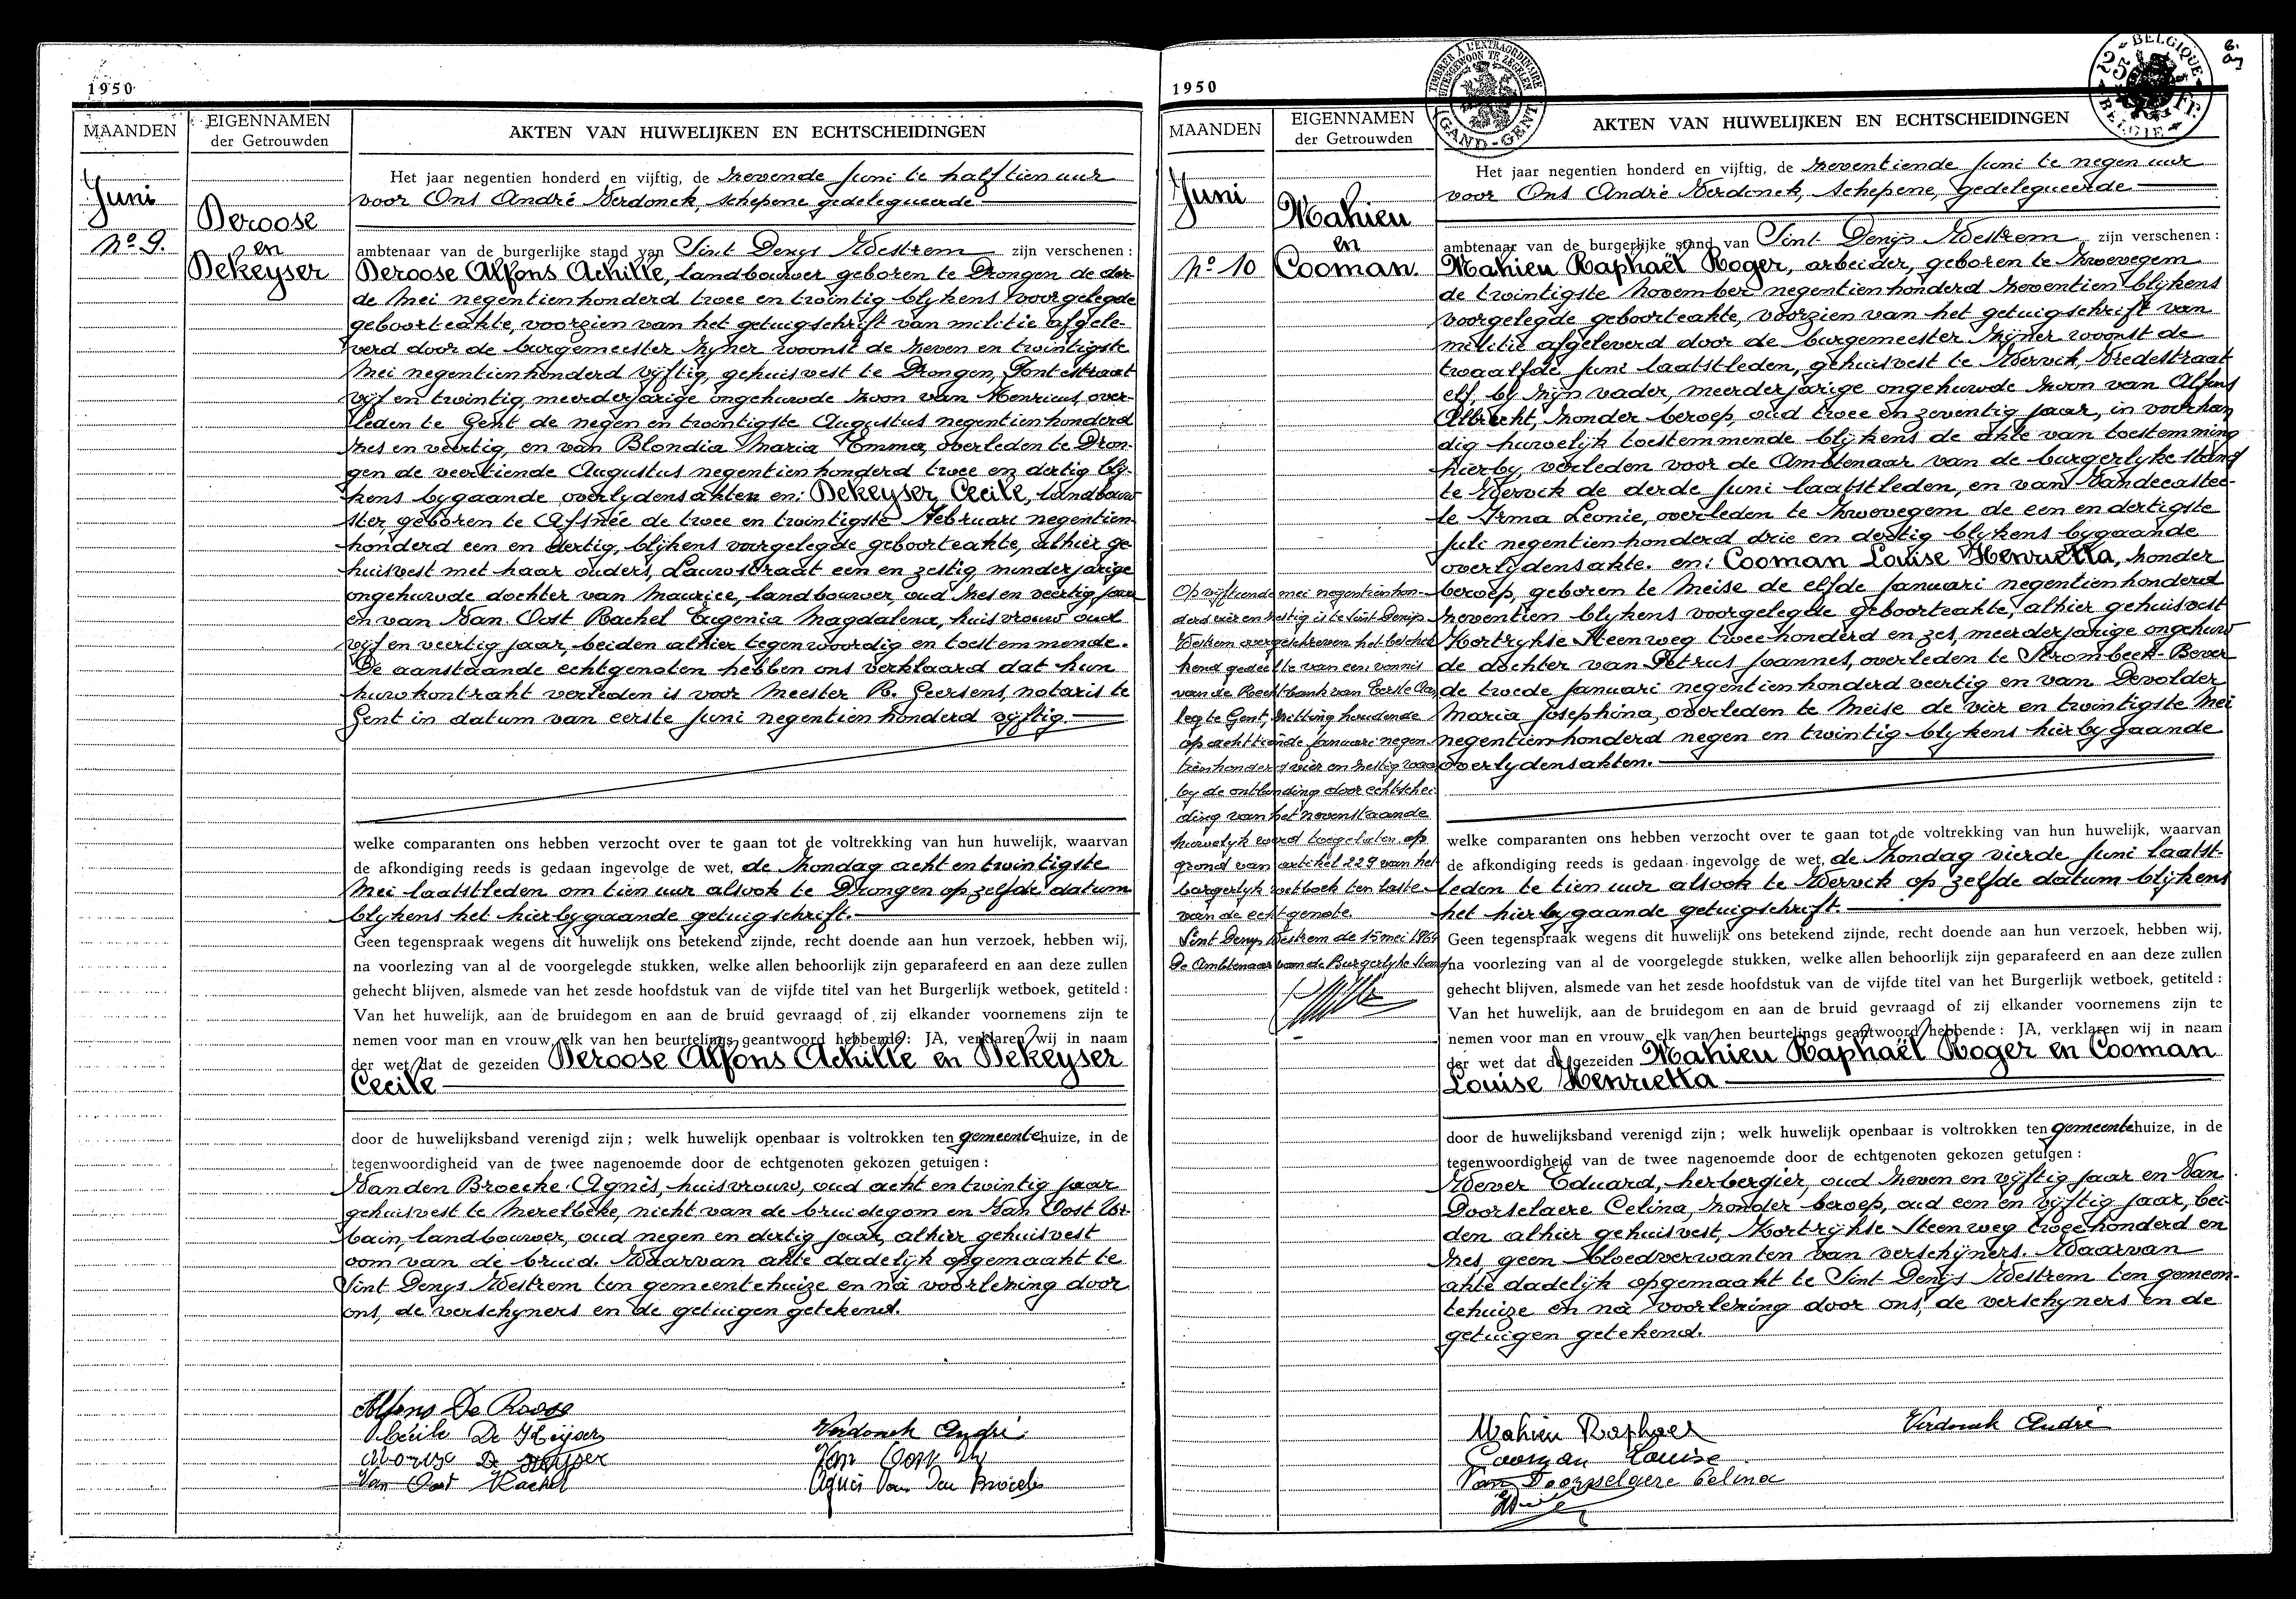 1950
MAANDEN
EIGENNAMEN
der Getrouwden
AKTEN VAN HUWELIJKEN EN ECHTSCHEIDINGEN
Juni
No 9.
Deroose
en
Dekeyser
Het jaar negentien honderd en vijftig, de zevende Juni te half tien uur
voor Ons André Verdonck, schepene gedelegueerde
ambtenaar van de burgerlijke stand van Sint Denys Westrem zijn verschenen :
Deroose Alfons Achille, landbouwer geboren te Drongen de der-
de Mei negentienhonderd twee en twintig blijkens voorgelegde
geboorteakte, voorzien van het getuigschrift van militie afgele-
verd door de burgemeester zijner woonst de zeven en twintigste
Mei negentienhonderd vijftig, gehuisvest te Drongen, Pontestraat
vijf en twintig, meerderjarige ongehuwde zoon van Henricus, over-
leden te Gent de negen en twintigste Augustus negentienhonderd
zes en veertig, en van Blondia Maria Emma, overleden te Dron-
gen de veertiende Augustus negentien honderd twee en dertig blij-
kens bygaande overlydensakten en: Dekeyser Cecile, landbouw-
ster, geboren te Afsnée de twee en twintigste Februari negentien-
honderd een en dertig, blijkens voorgelegde geboorteakte, alhier ge-
huisvest met haar ouders, Lauwstraat een en zestig, minderjarige
ongehuwde dochter van Maurice, landbouwer, oud zes en veertig jaar
en van Van Oost Rachel Eugenia Magdalena, huisvrouw oud
vijf en veertig jaar, beiden alhier tegenwoordig en toestemmende.
De aanstaande echtgenoten hebben ons verklaard dat hun
huwkontrakt verleden is voor Meester R. Geersens, notaris te
Gent in datum van eerste Juni negentien honderd vijftig.
welke comparanten ons hebben verzocht over te gaan tot de voltrekking van hun huwelijk, waarvan
de afkondiging reeds is gedaan ingevolge de wet, de zondag acht en twintigste
Mei laatstleden om tien uur alsook te Drongen op zelfde datum
blijkens het hierbygaande getuigschrift.
Geen tegenspraak wegens dit huwelijk ons betekend zijnde, recht doende aan hun verzoek, hebben wij,
na voorlezing van al de voorgelegde stukken, welke allen behoorlijk zijn geparafeerd en aan deze zullen
gehecht blijven, alsmede van het zesde hoofdstuk van de vijfde titel van het Burgerlijk wetboek, getiteld :
Van het huwelijk, aan de bruidegom en aan de bruid gevraagd of zij elkander voornemens zijn te
nemen voor man en vrouw, elk van hen beurtelings geantwoord hebbende: JA, verklaren wij in naam
der wet dat de gezeiden Deroose Alfons Achille en Dekeyser
Cecile
door de huwelijksband verenigd zijn ; welk huwelijk openbaar is voltrokken ten gemeentehuize, in de
tegenwoordigheid van de twee nagenoemde door de echtgenoten gekozen getuigen :
Vanden Broecke Agnès, huisvrouw, oud acht en twintig jaar
gehuisvest te Merelbeke, nicht van de bruidegom en Van Oost Ur-
bain, landbouwer, oud negen en dertig jaar, alhier gehuisvest
oom van de bruid. Waarvan akte dadelijk opgemaakt te
Sint Denys Westrem ten gemeentehuize en nà voorlezing door
ons, de verschyners en de getuigen getekend.
Alfons De Roose
Cécile De Keijser
Maurice De Keyser
Van Oost Rachel
Verdonck André
Van Oost Ur
Agnes Van Den Broecke
1950
TIMBRER A L'EXTRAORDINAIRE
BUITENGEWOON TE ZEGELEN
GAND-GENT
BELGIQUE
25 Fr.
BELGIE
MAANDEN
EIGENNAMEN
der Getrouwden
AKTEN VAN HUWELIJKEN EN ECHTSCHEIDINGEN
Juni
No 10
Mahieu
en
Cooman.
Het jaar negentien honderd en vijftig, de zeventiende Juni te negen uur
voor Ons André Verdonck, schepene, gedelegueerde
ambtenaar van de burgerlijke stand van Sint Denys Westrem zijn verschenen :
Mahieu Raphaël Roger, arbeider, geboren te Zwevegem
de twintigste November negentienhonderd zeventien blijkens
voorgelegde geboorteakte, voorzien van het getuigschrift van
militie afgeleverd door de burgemeester zijner woonst de
twaalfde Juni laatstleden, gehuisvest te Wervik, Vredestraat
elf, bij zijn vader, meerderjarige ongehuwde zoon van Alfons
Albrecht, zonder beroep, oud twee en zeventig jaar, in voorhan
dig huwelijk toestemmende blijkens de akte van toestemming
hierby, verleden voor de Ambtenaar van de burgerlyke stand
te Wervik de derde Juni laatstleden, en van Vandecastee-
le Irma Leonie, overleden te Zwevegem de een en dertigste
Juli negentienhonderd drie en dertig blykens bygaande
overlydensakte. en: Cooman Louise Henrietta, zonder
beroep, geboren te Meise de elfde Januari negentienhonderd
zeventien blykens voorgelegde geboorteakte, alhier gehuisvest
Kortrykse Steenweg twee honderd en zes, meerderjarige ongehuw
de dochter van Petrus Joannes, overleden te Strombeek-Bever
de twede Januari negentienhonderd veertig en van Devolder
Maria Josephina, overleden te Meise de vier en twintigste Mei
negentienhonderd negen en twintig blykens hierbygaande
overlydensakten.
Op vijftiende mei negentienhon-
derd vier en zestig is te Sint Denijs
Westrem overgeschreven het beschik
kend gedeelte van een vonnis
van de Rechtbank van Eerste Aan
leg te Gent, zitting houdende
op achttiende Januari negen-
tienhonderd vier en zestig waar
by de ontbinding door echtschei
ding van het nevenstaande
huwelyk werd toegelaten op
grond van artikel 229 van het
burgerlyk wetboek ten laste
van de echtgenote.
Sint Denys Westrem de 15 mei 1964
De Ambtenaar van de Burgerlyke Stand
welke comparanten ons hebben verzocht over te gaan tot de voltrekking van hun huwelijk, waarvan
de afkondiging reeds is gedaan ingevolge de wet, de zondag vierde Juni laatst-
leden te tien uur alsook te Wervik op zelfde datum blijkens
het hierbygaande getuigschrift.
Geen tegenspraak wegens dit huwelijk ons betekend zijnde, recht doende aan hun verzoek, hebben wij,
na voorlezing van al de voorgelegde stukken, welke allen behoorlijk zijn geparafeerd en aan deze zullen
gehecht blijven, alsmede van het zesde hoofdstuk van de vijfde titel van het Burgerlijk wetboek, getiteld :
Van het huwelijk, aan de bruidegom en aan de bruid gevraagd of zij elkander voornemens zijn te
nemen voor man en vrouw, elk van hen beurtelings geantwoord hebbende : JA, verklaren wij in naam
der wet dat de gezeiden Mahieu Raphaël Roger en Cooman
Louise Henrietta
door de huwelijksband verenigd zijn ; welk huwelijk openbaar is voltrokken ten gemeentehuize, in de
tegenwoordigheid van de twee nagenoemde door de echtgenoten gekozen getuigen :
Wever Eduard, herbergier, oud zeven en vijftig jaar en Van
Doorselaere Celina, zonder beroep, oud een en vijftig jaar, bei-
den alhier gehuisvest, Kortrijkse Steenweg twee honderd en
zes, geen bloedverwanten van verschijners. Waarvan
akte dadelijk opgemaakt te Sint Denijs Westrem ten gemeen-
tehuize en nà voorlezing door ons, de verschyners en de
getuigen getekend.
Mahieu Raphael
Cooman Louise
Van Doorselaere Celina
Verdonck André